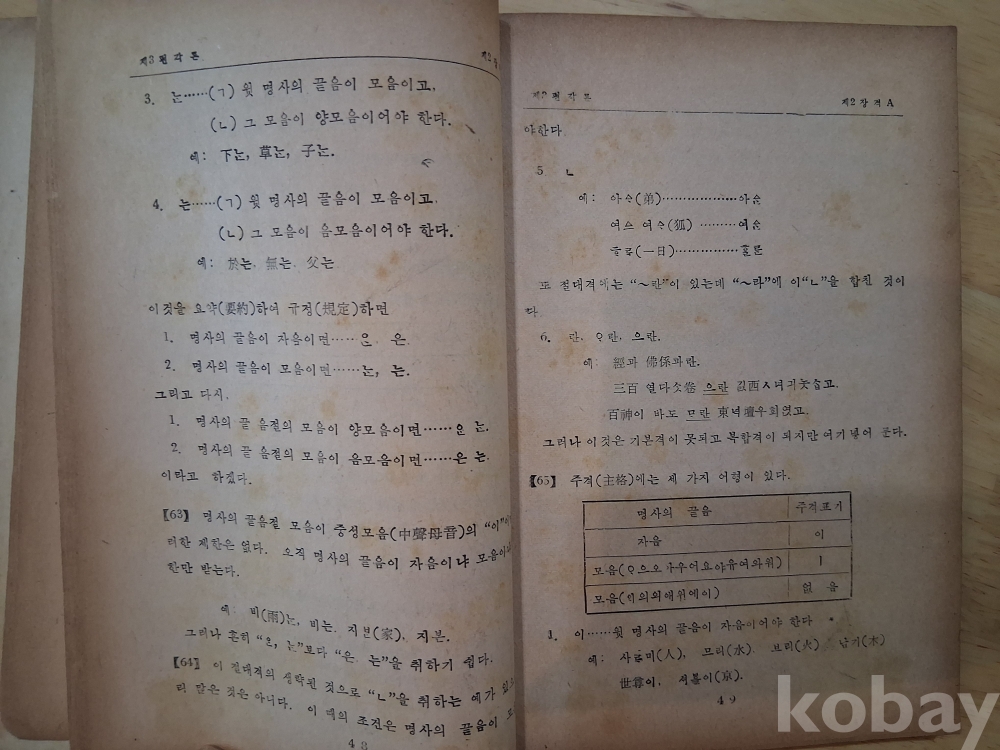 제3편 각론
3. ᄂᆞᆫ……(ㄱ) 윗 명사의 끝음이 모음이고,
(ㄴ) 그 모음이 양모음이어야 한다.
예: 下ᄂᆞᆫ, 草ᄂᆞᆫ, 子ᄂᆞᆫ.
4. 는……(ㄱ) 윗 명사의 끝음이 모음이고,
(ㄴ) 그 모음이 음모음이어야 한다.
예: 於는, 無는, 父는
이것을 요약(要約)하여 규정(規定)하면
1. 명사의 끝음이 자음이면……ᄋᆞᆫ, 은.
2. 명사의 끝음이 모음이면……ᄂᆞᆫ, 는.
그리고 다시,
1. 명사의 끝 음절의 모음이 양모음이면……ᄋᆞᆫ ᄂᆞᆫ.
2. 명사의 끝 음절의 모음이 음모음이면……은 는.
이라고 하겠다.
【63】 명사의 끝음절 모음이 중성모음(中聲母音)의 “이”
러한 제한은 없다. 오직 명사의 끝음이 자음이냐 모음이냐
한만 받는다.
예: 비(雨)ᄂᆞᆫ, 비는, 지ᄇᆞᆫ(家), 지븐.
그러나 흔히 “ᄋᆞᆫ, ᄂᆞᆫ”보다 “은 는”을 취하기 쉽다.
【64】 이 절대격의 생략된 것으로 “ㄴ”을 취하는 예가 있
리 많은 것은 아니다. 이 때의 조건은 명사의 끝음이 모
48
제3편 각론
제2장 격 A
야한다.
5 ㄴ
예: 아ᅀᆞ(弟)………………아ᅀᆞᆫ
여ᅀᆞ 여ᅀᆞ(狐) ………여ᅀᆞᆫ
(一日)……………
또 절대격에는 “～란”이 있는데 “～라”에 이“ㄴ”을 합친 것이
다.
6. 란, ᄋᆞ란, 으란.
예: 經과 佛像과란.
三百 열다ᄉᆞᆺ卷 으란 西ㅅ녀긔놋ᄉᆞᆸ고.
百神이 바도 란 東녁壇우희엿고.
그러나 이것은 기본격이 못되고 복합격이 되지만 여기 넣어 둔다.
【65】 주격(主格)에는 세 가지 어형이 있다.
명사의 끝음 주격표기
자음 이
모음(ᄋᆞ으오아우어요야유여와워) ㅣ
모음(ᄋᆡ의외애위에이) 없음
1. 이……윗 명사의 끝음이 자음이어야 한다
예: 사ᄅᆞ미(人), 므리(水), 브리(火), 남기(木)
世尊이, 셔ᄫᅳᆯ이(京).
49
kobay